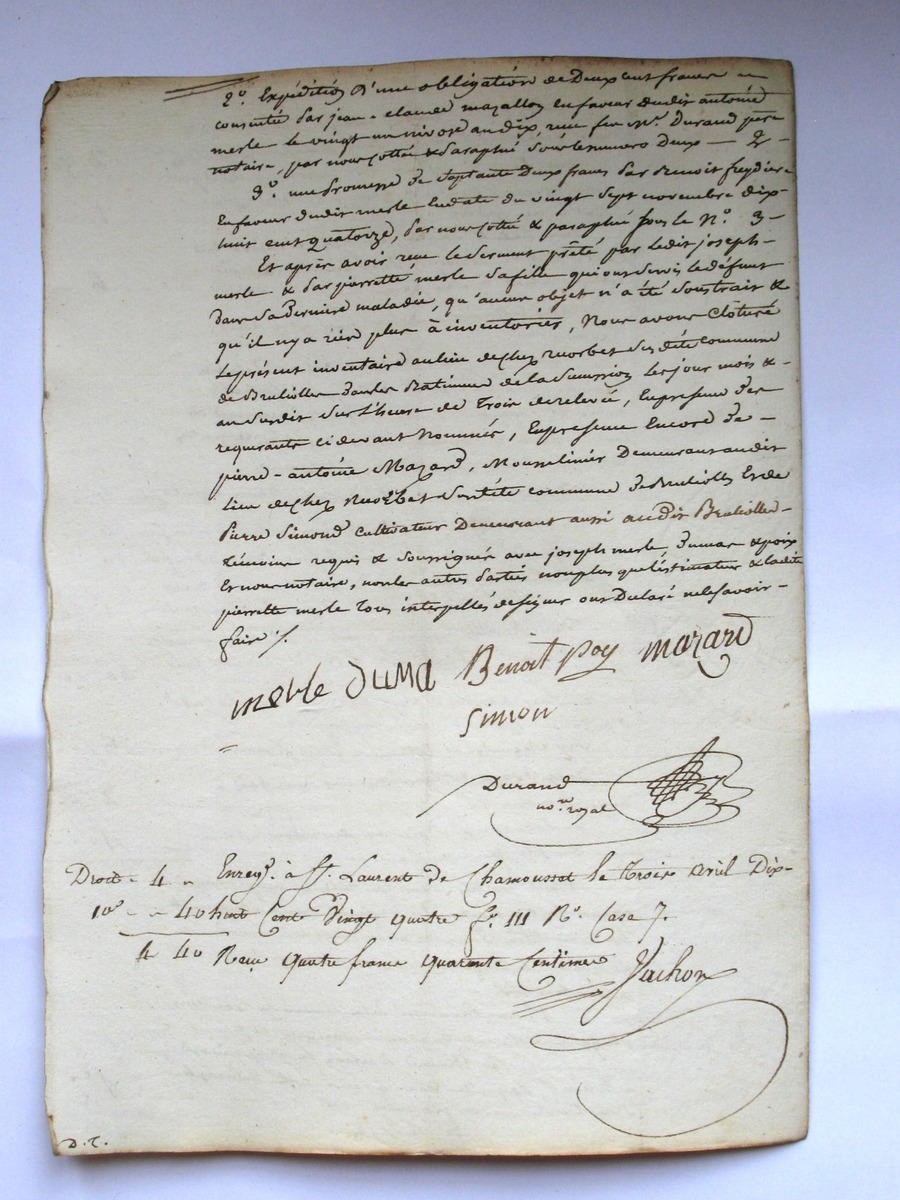 2.° Expédition d'une obligation de Deux cent francs
consentie par jean-claude mazallon en faveur dudit antoine
merle le vingt un nivose an dix, reçue feu M.e Durand père
notaire, par nous cotté & paraphé sous le numero Deux — 2 -
3.° une promesse de septante Deux francs par Benoit freydiere
en faveur dudit merle en date du vingt sept novembre dix-
huit cent quatorze, par nous cotté & paraphé sous le N.° 3-
Et après avoir reçu le serment prêté par ledit joseph-
merle & par pierrette merle sa fille qui ont servis le défunt
dans sa Dernière maladie, qu'aucun objet n'a été soustrait &
qu'il n'y a rien plus à inventorier, Nous avons Cloturé
le présent inventaire au lieu de chez susdite commune
de Brulliolles dans le Batiment de la succession les jour mois &-
an susdit sur l'heure de Trois de relevée, En présence des
requerants ci devant Nommés, En présence Encore de-
pierre-antoine Mazard, Mousselinier Demeurant audit
lieu de chez susdite commune de Brulliolles Et de
Pierre Simond Cultivateur Demeurant aussi audit Brulliolles-
témoins requis & soussignés avec joseph merle, Dumas & poix
Et nous notaire, non les autres parties non plus que l'estimateur & ladite
pierrette merle Tous interpellés de signer ont Declaré ne le savoir-
faire ./.
merle Duma Benoit poy mazard
Simon
Durand
no.re royal
Droit - 4 " Enreg.é à S.t Laurent de Chamousset le Trois avril Dix-
10e - " 40 huit Cent Vingt quatre f.° 111 R.° Case 7.
4 40 Reçu quatre francs quarante Centimes Jachon
D. T.